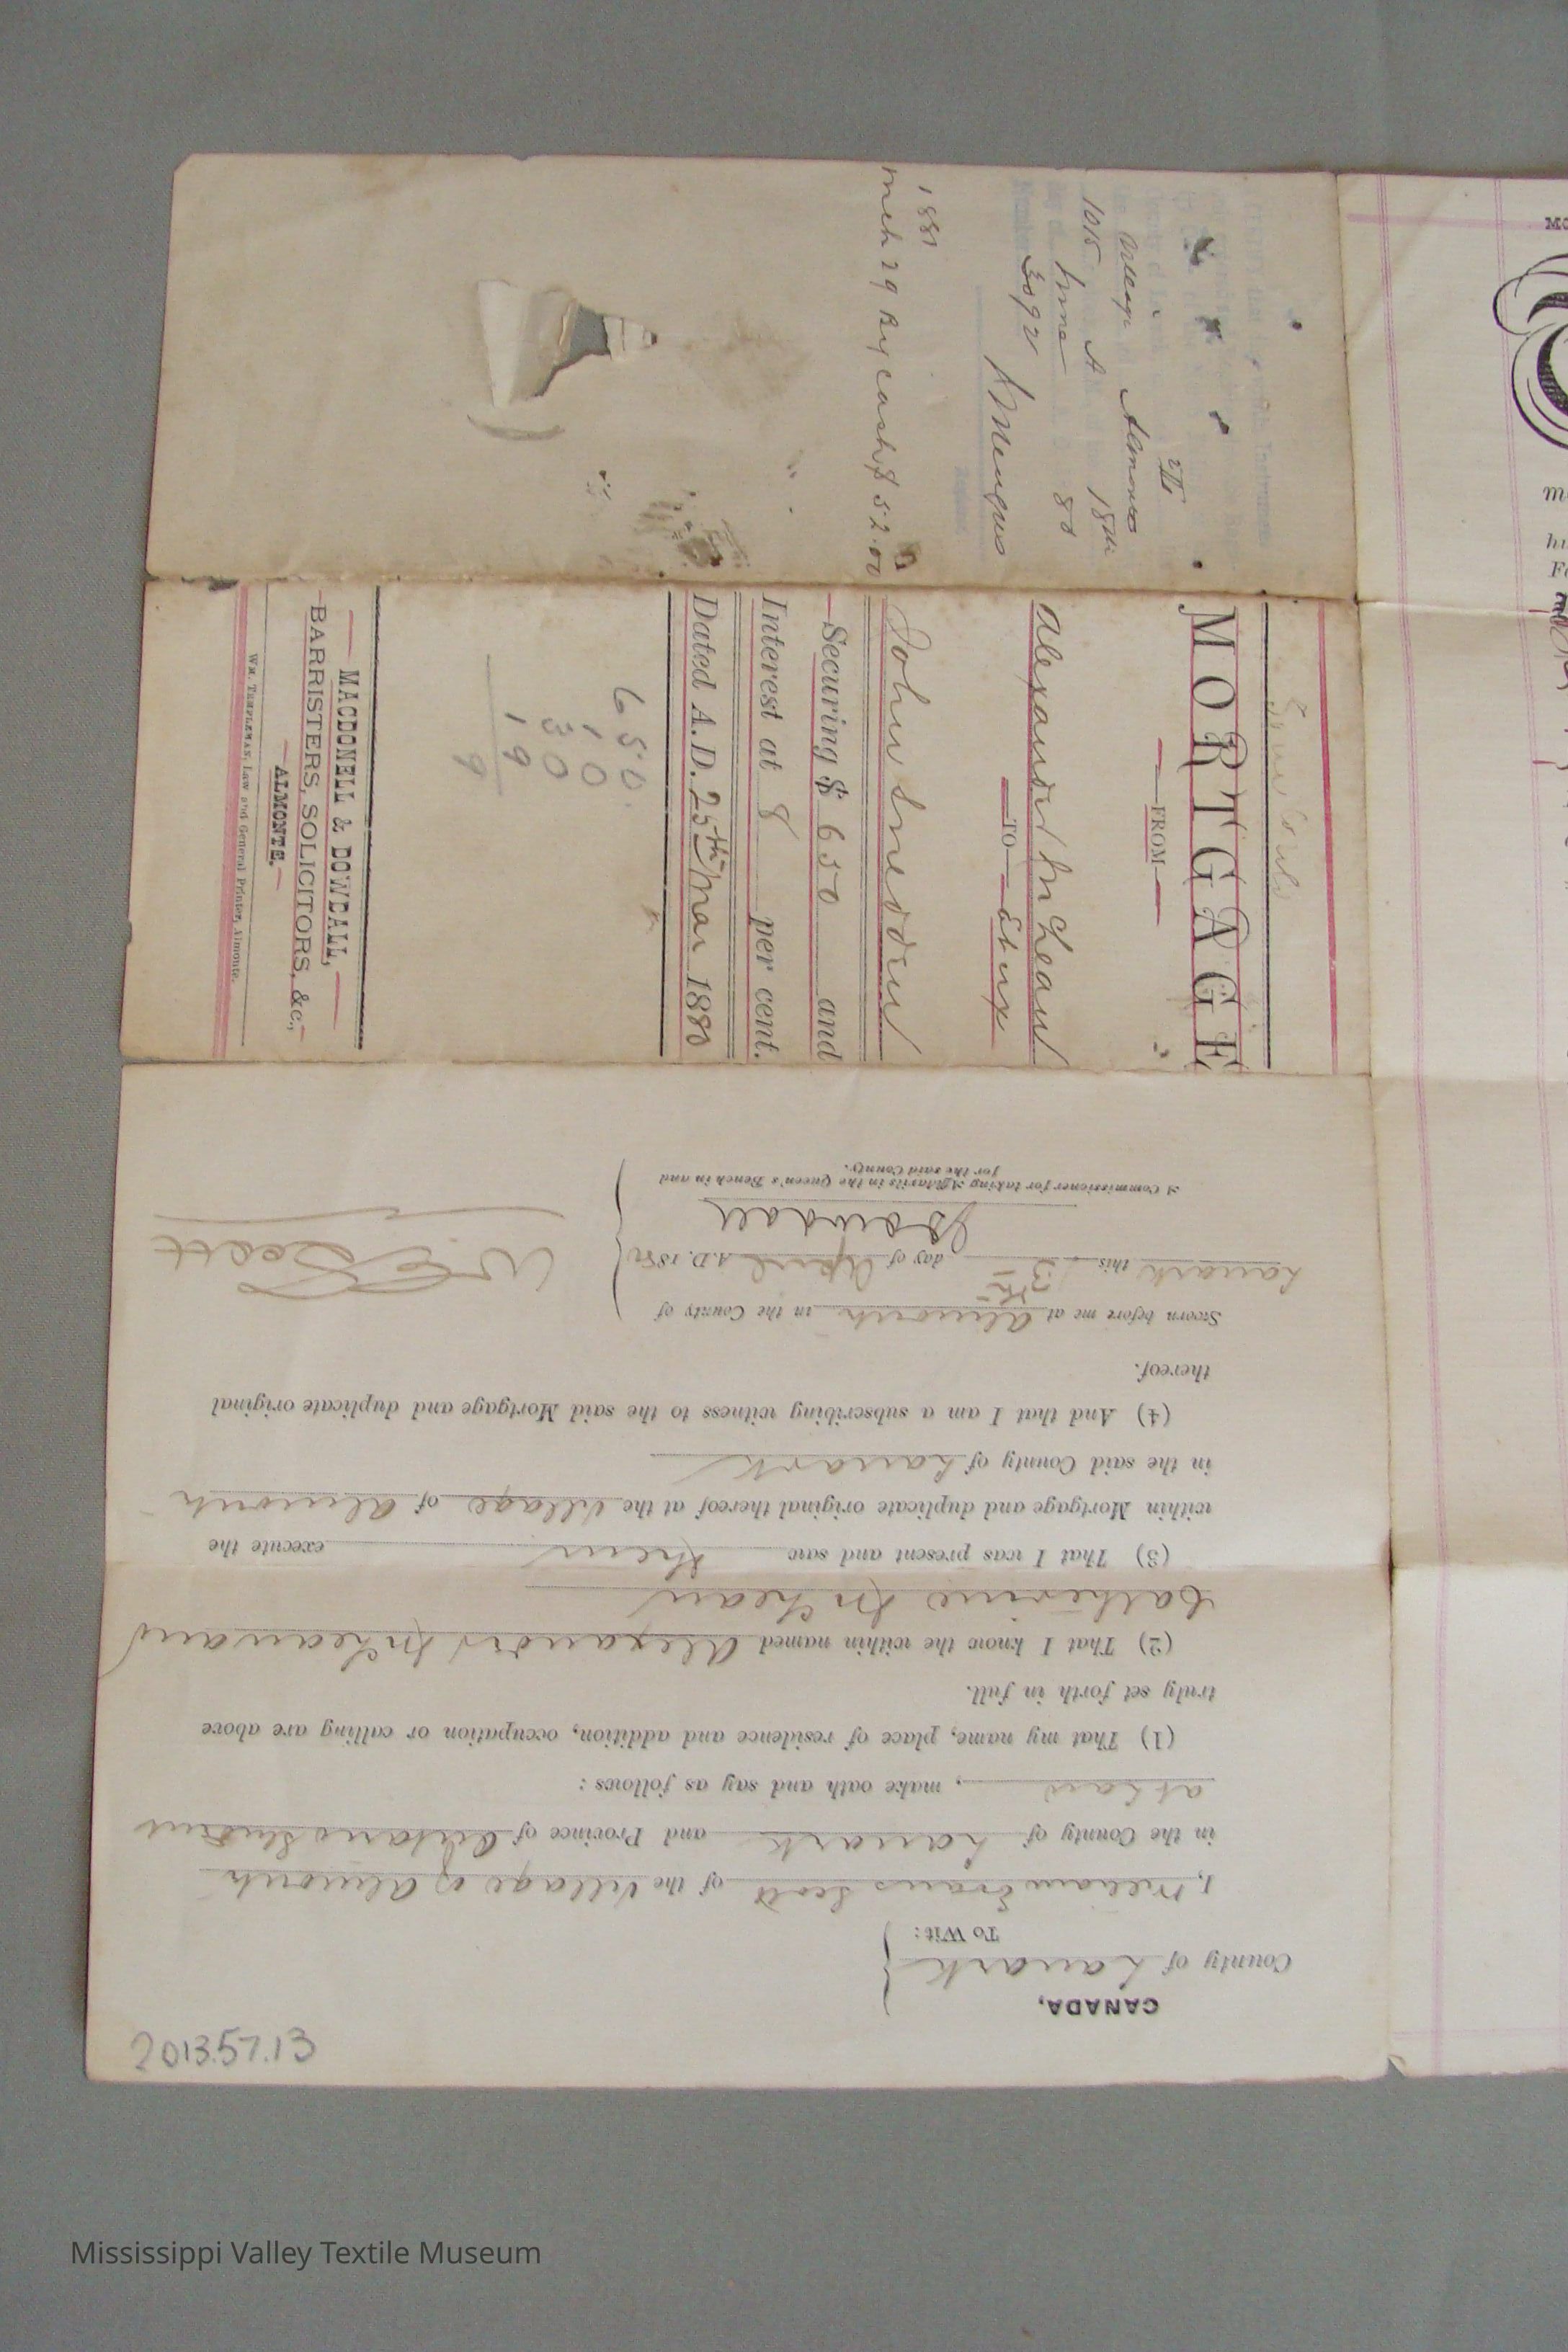 1881
Mch 29 By cash $52.00
MORTGAGE
FROM
Alexander McLean
TO Et ux
John Sneddon
Securing $ 650 and
Interest at 8 per cent.
Dated A.D. 25th Mar 1880
650
MACDONELL & DOWDALL,
BARRISTERS, SOLICITORS, &c.,
ALMONTE.
Wm. Templeman, Law and General Printer, Almonte.
CANADA,
County of Lanark
To Wit:
I, William Evans Scott of the Village of Almonte
in the County of Lanark and Province of Ontario Student
at Law, make oath and say as follows:
(1) That my name, place of residence and addition, occupation or calling are above
truly set forth in full.
(2) That I know the within named Alexander McLean and
Catherine McLean
(3) That I was present and saw them execute the
within Mortgage and duplicate original thereof at the Village of Almonte
in the said County of Lanark
(4) And that I am a subscribing witness to the said Mortgage and duplicate original
thereof.
Sworn before me at Almonte in the County of
Lanark this day of April A.D. 1880
W E Scott
Dowdall
A Commissioner for taking Affidavits in the Queen's Bench in and
for the said County.
2013.57.13
Mississippi Valley Textile Museum